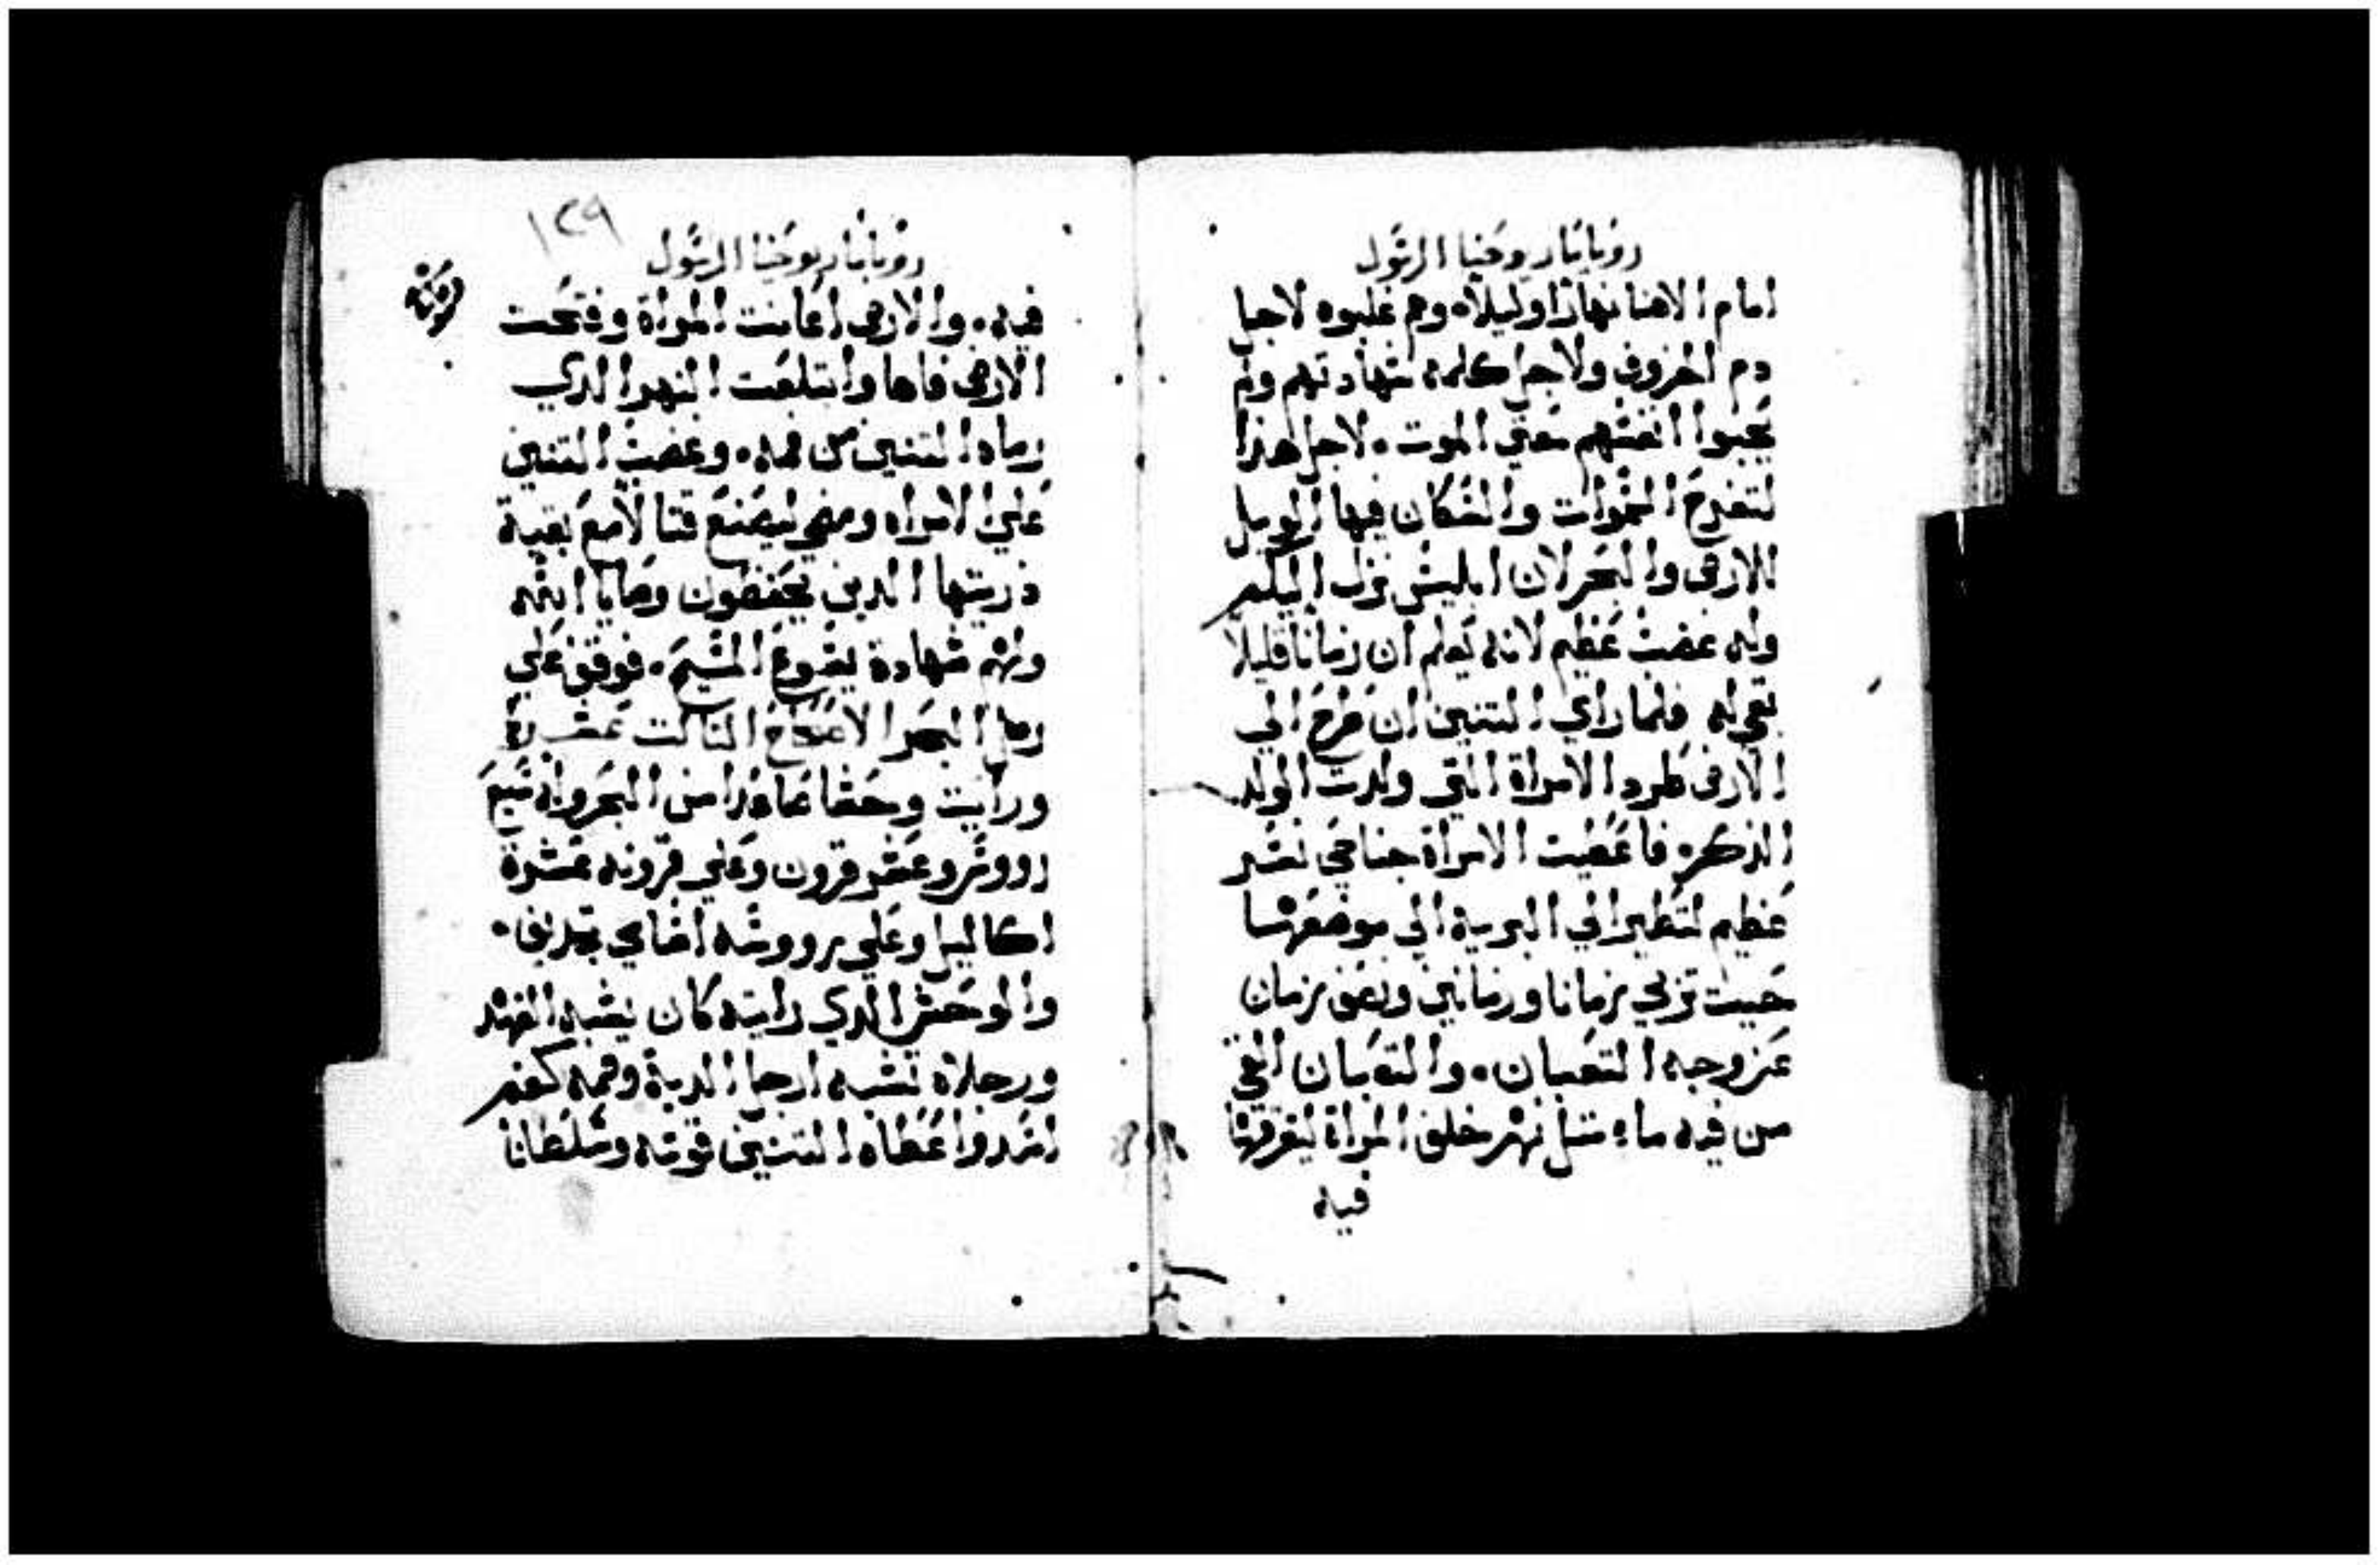 رويا مار يوحنا الرسول
امام الاهنا نهارًا وليلًا۰ وهم غلبوه لاجل
دم الخروف ولاجل كلمة شهادتهم ولم
يحبوا انفسهم حتي الموت۰ لاجل هذا
لتفرح السموات والسكان فيها الويل
للارض والبحر لان ابليس نزل اليكم
وله غضب عظيم لانه يعلم ان زمانًا قليلًا
بقي له فلما راي التنين ان طرح الي
الارض طرد الامراة التي ولدت الولد
الذكر۰ فاعطيت الامراة جناحي نسر
عظيم لتطير الي البرية الي موضعها
حيت تربي زمانا وزمانين ونصف زمان
عن وجه التعبان۰ والتعبان القي
من فيه ماء متل نهر خلف المراة ليغرقها
فيه
رويا مار يوحنا الرسول
١٢٩
فيه۰ والارض اعانت المراة وفتحت
الارض فاها وابتلعت النهر الدي
رماه التنين من فمه۰ وغضب التنين
علي الامراه ومضي ليصنع قتالًا مع بقية
ذريتها الدين يحفظون وصايا الله
ولهم شهادة يسوع المسيح۰ فوقف علي
رمل البحر الاصحاح التالت عشر
ورايت وحشا صاعدا من البحر وله سبع
رووس وعشر قرون وعلي قرونه عشرة
اكاليل وعلي رووسه اسامي تجديف۰
والوحش الدي رايته كان يشبه الفهد
ورجلاه تشبه ارجل الدبة وفمه كفم
اسد واعطاه التنين قوته وسلطانا